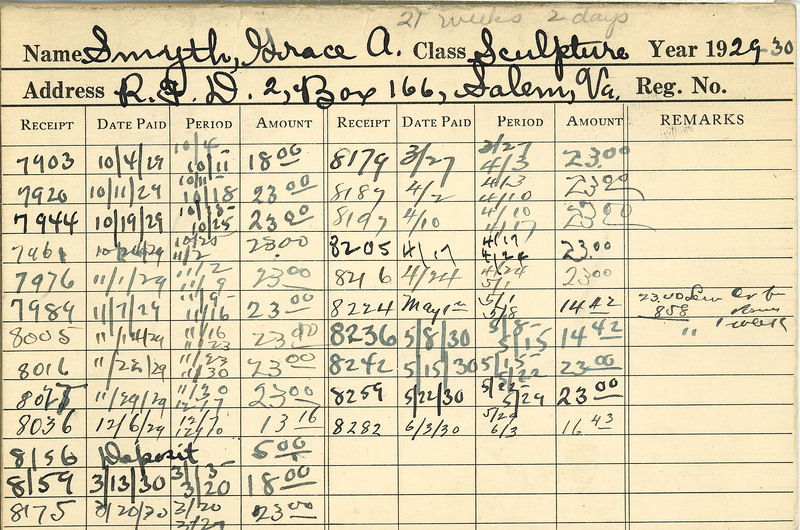 21 weeks 2 days
Name Smyth, Grace A. Class Sculpture Year 1929-30
Address R.F.D. 2, Box 166, Salem, Va. Reg. No.
RECEIPT DATE PAID PERIOD AMOUNT RECEIPT DATE PAID PERIOD AMOUNT REMARKS
7903 10/4/29 10/4 10/11 18.00 8179 3/27 3/27 4/3 23.00
7920 10/11/29 10/11- 10/18 23.00 8187 4/2 4/3 4/10 23.00
7944 10/19/29 10/18- 10/25 23.00 8197 4/10 4/10 4/17 23.00
7961 11/2 23.00 8205 4/17 4/17 4/24 23.00
7976 11/1/29 11/2 11/9 23.00 8216 4/24 4/24 5/1 23.00
7989 11/7/29 11/9- 11/16 23.00 8224 May 1 5/1 5/8 14.42 23.00 Less 8.58 1 week
8005 11/14/29 11/16 11/23 23.00 8236 5/8/30 5/8- 5/15 14.42 " "
8016 11/23 11/30 23.00 8242 5/15/30 5/15- 5/22 23.00
11/29/29 11/30 12/7 23.00 8259 5/22/30 5/22- 5/29 23.00
8036 12/6/29 12/7 12/10 13.16 8282 6/3/30 5/29 6/3 16.43
8156 Deposit 5.00
8159 3/13/30 3/13- 3/20 18.00
8175 3/20/30 3/20 3/27 23.00